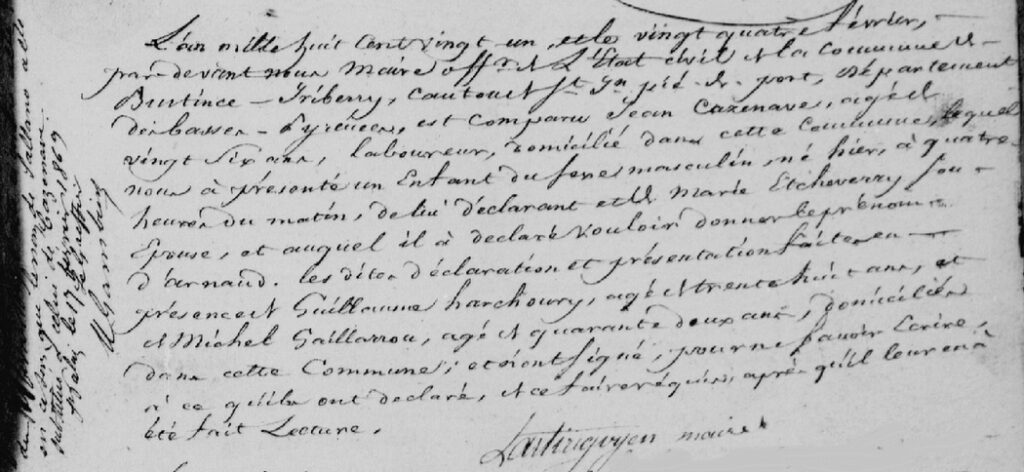 L'an mille huit cent vingt un, et le vingt quatre février,
pardevant nous Maire offr. de L'état civil de la Commune de
Bustince - Iriberry, Canton de St. Jn pié de port, Département
des basses - Pyrénées, est comparu Jean Cazenave, agé de
vingt six ans, laboureur, domicilié dans cette Commune, lequel
nous à présenté un Enfant du sexe masculin, né hier, à quatre
heures du matin, de lui déclarant et de Marie Etcheverry son
Epouse, et auquel il à déclaré vouloir donner le prénom
d'arnaud. les dites déclaration et présentation faites en
présence de Guillaume harchoury, agé de trente huit ans, et
de Michel Gaillarrou, agé de quarante deux ans, domiciliés
dans cette Commune; et n'ont signé, pour ne savoir Ecrire,
à ce qu'ils ont déclaré, de ce faire réquis, après qu'il leur en à
été fait Lecture.
maire
en ce sens que le nom de
substitué à celui de Cazenave
le 17 1869